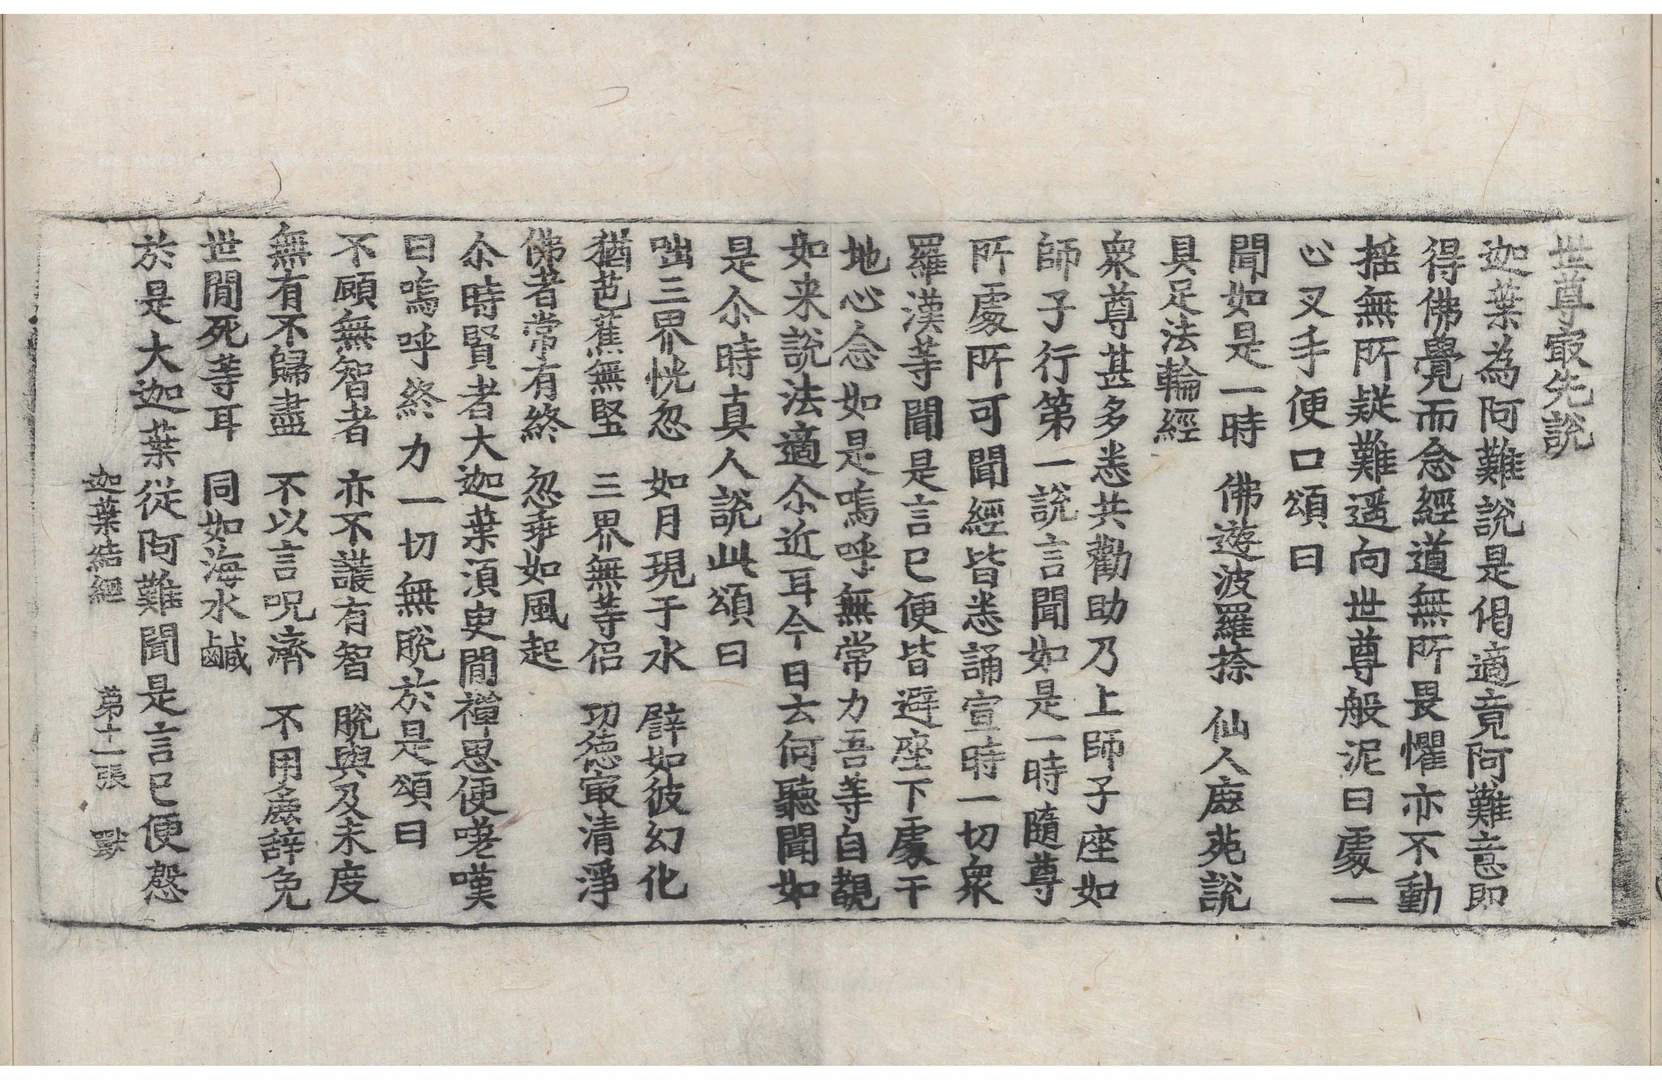 世尊㝡先說
迦葉為阿難說是偈適竟阿難意即
得佛覺而念經道無所畏懼亦不動
搖無所疑難遥向世尊般泥曰處一
心叉手便口頌曰
聞如是一時 佛遊波羅捺 仙人鹿苑說
具足法輪經
衆尊甚多悉共勸助乃上師子座如
師子行第一說言聞如是一時隨尊
所處所可聞經皆悉誦宣時一切衆
羅漢等聞是言已便皆避座下處于
地心念如是嗚呼無常力吾等自覩
如来說法適尒近耳今日去何聽聞如
是尒時真人說此頌曰
咄三界恍忽 如月現于水 譬如彼幻化
猶芭蕉無堅 三界無等侶 功德㝡清淨
佛者常有終 忽乖如風起
尒時賢者大迦葉湏臾閒禪思便嗟嘆
曰嗚呼終力一切無脫於是頌曰
不顧無智者 亦不護有智 脫與及未度
無有不歸盡 不以言呪濟 不用處辞免
世閒死等耳 同如海水鹹
於是大迦葉従阿難聞是言已便慇
迦葉結經 第十一張 獸